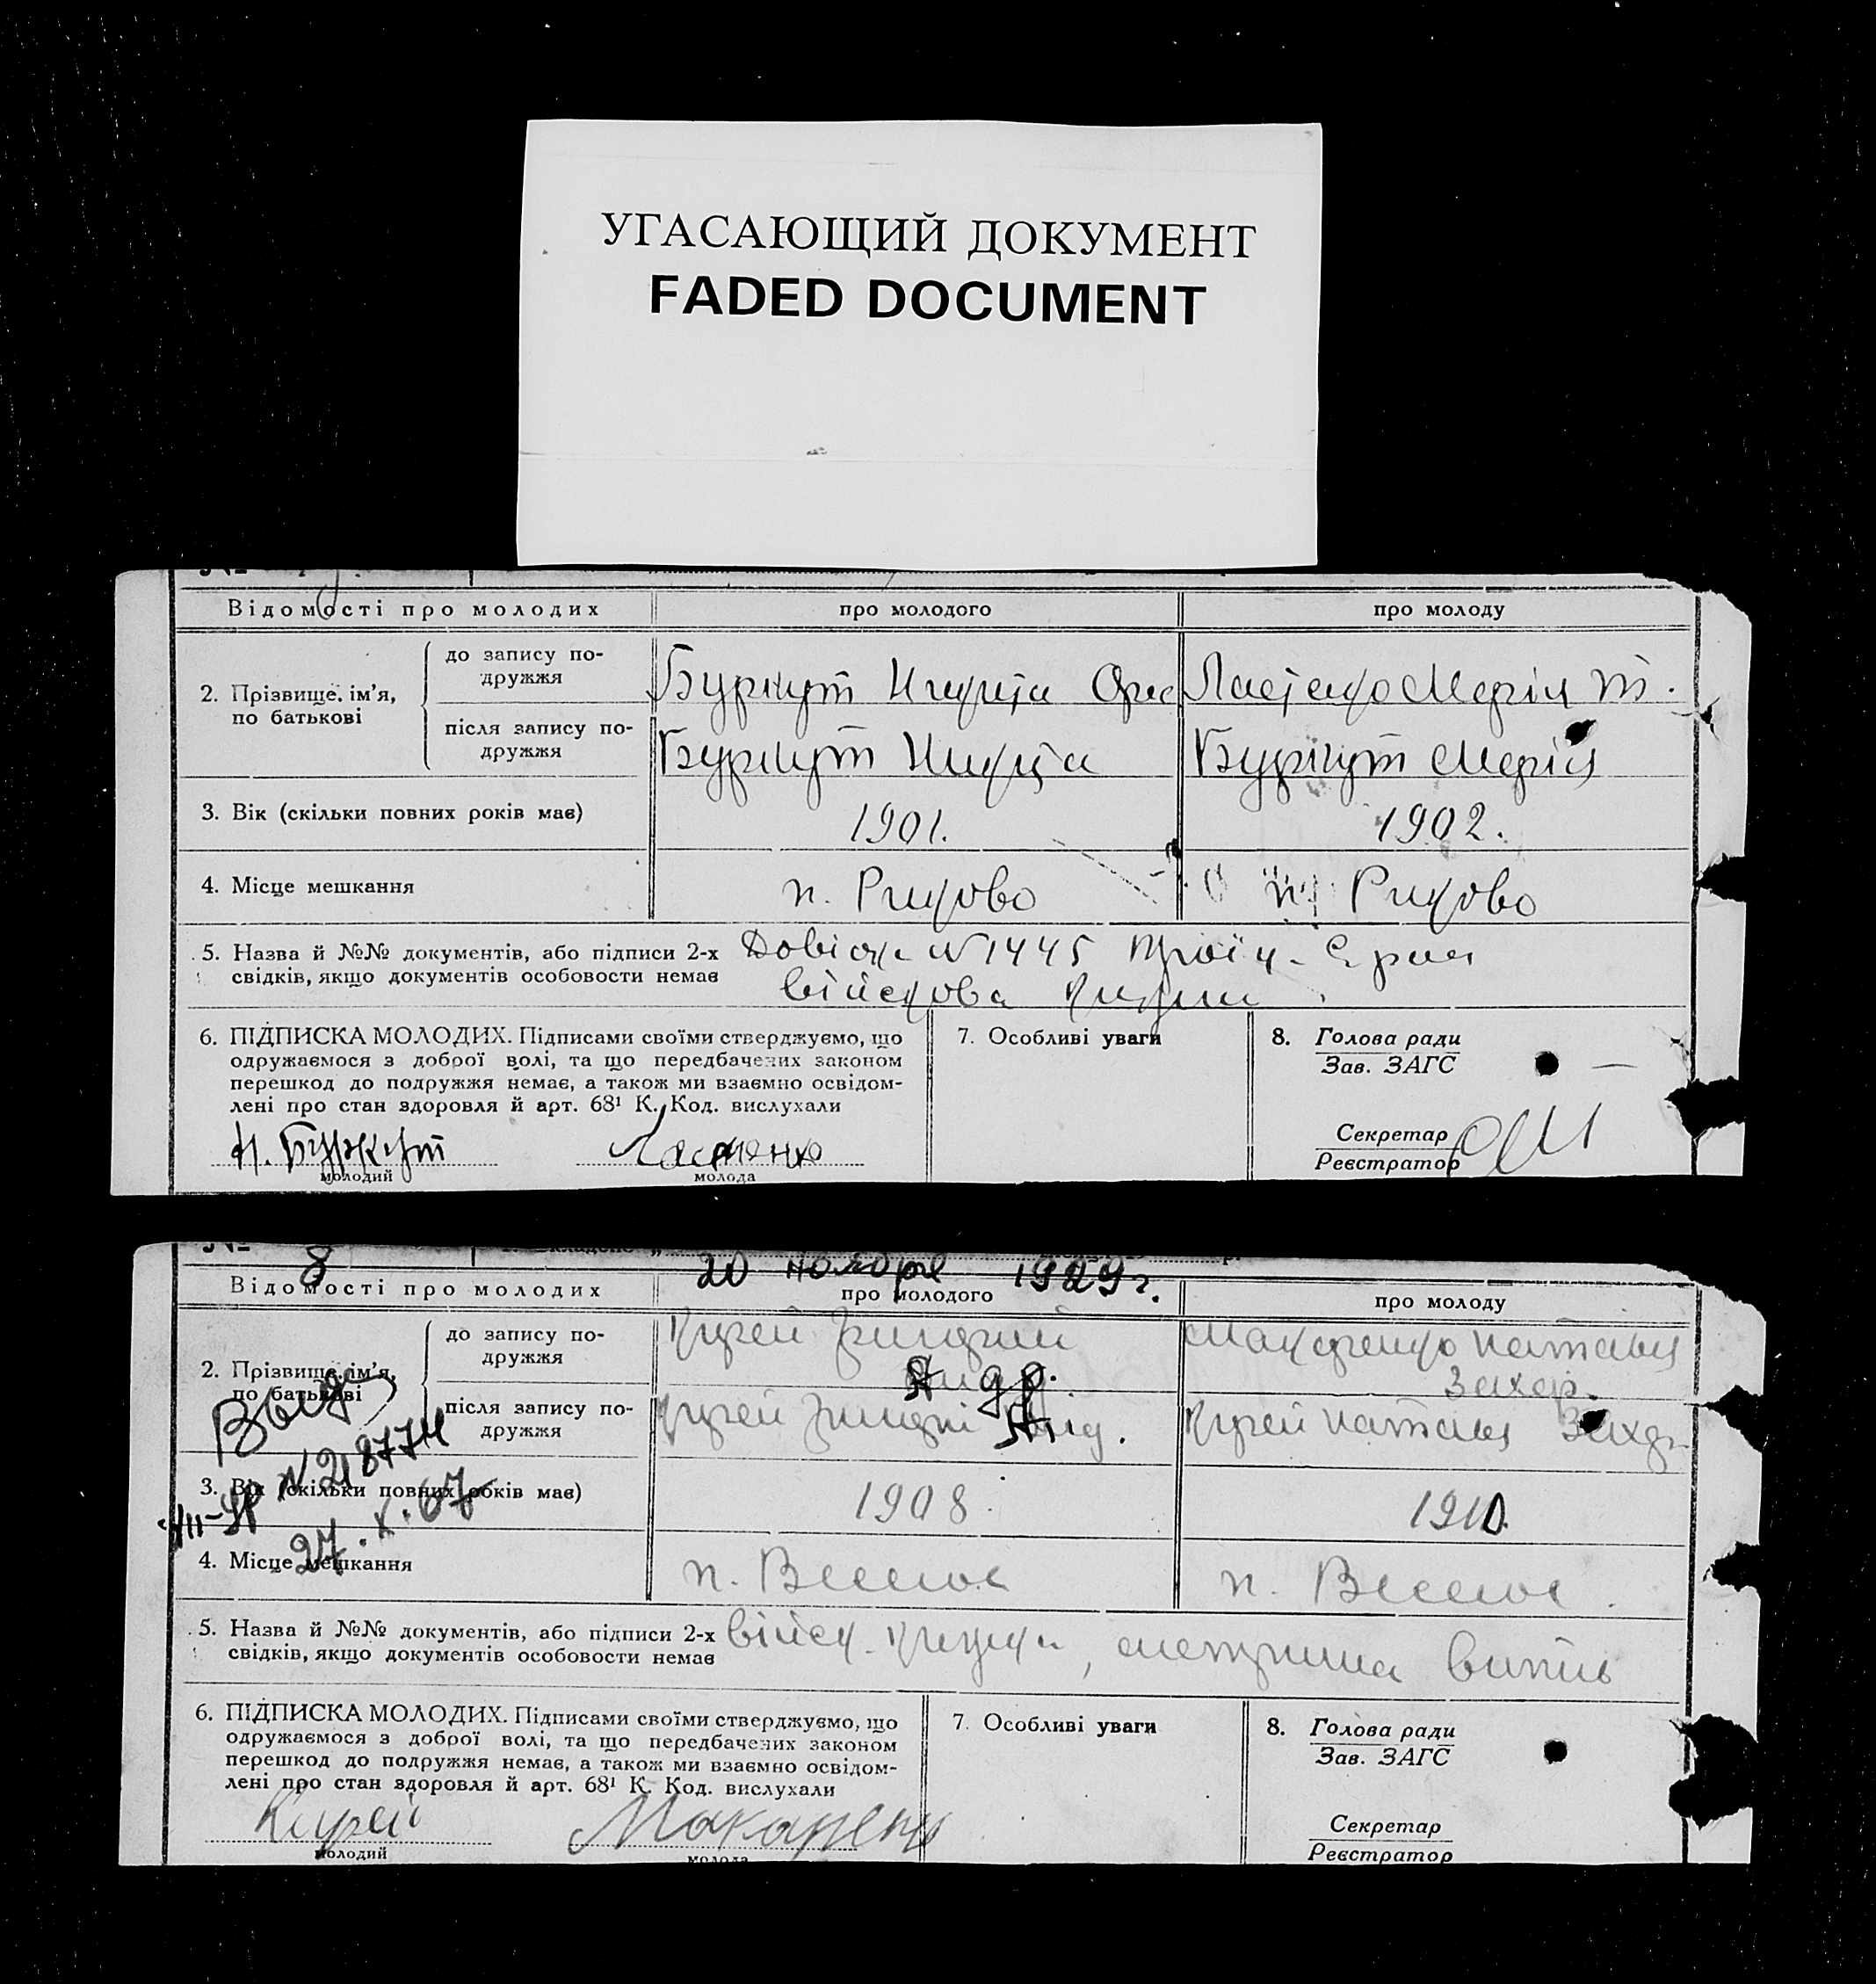 УГАСАЮЩИЙ ДОКУМЕНТ
FADED DOCUMENT
№
Відомості про молодих
про молодого
про молоду
2. Прізвище, ім'я, по батькові
до запису по-
дружжя
Буркут Никита
Мерія Т.
після запису по-
дружжя
Буркут Никита
Буркут Мерія
3. Вік (скільки повних років має)
1901.
1902.
4. Місце мешкання
п. Риково
п. Риково
5. Назва й №№ документів, або підписи 2-х
свідків, якщо документів особовости немає
№ 1445
військова
6. ПІДПИСКА МОЛОДИХ. Підписами своїми стверджуємо, що
одружаємося з доброї волі, та що передбачених законом
перешкод до подружжя немає, а також ми взаємно освідом-
лені про стан здоровля й арт. 68¹ К. Код. вислухали
Н. Буркут
молодий
молода
7. Особливі уваги
8. Голова ради
Зав. ЗАГС
Секретар
Реєстратор
№ 8
20 ноября 1929 г.
Відомості про молодих
про молодого
про молоду
2. Прізвище, ім'я,
по батькові
до запису по-
дружжя
Андр.
Макаренко Наталія
Захар.
після запису по-
дружжя
Наталія
3. Вік (скільки повних років має)
1908.
1910.
4. Місце мешкання
п. Веселе
п. Веселе.
N 218774
27.X.67
5. Назва й №№ документів, або підписи 2-х
свідків, якщо документів особовости немає
військ. книжка, метрична випись
6. ПІДПИСКА МОЛОДИХ. Підписами своїми стверджуємо, що
одружаємося з доброї волі, та що передбачених законом
перешкод до подружжя немає, а також ми взаємно освідом-
лені про стан здоровля й арт. 68¹ К. Код. вислухали
Кирей
молодий
Макаренко
молода
7. Особливі уваги
8. Голова ради
Зав. ЗАГС
Секретар
Реєстратор